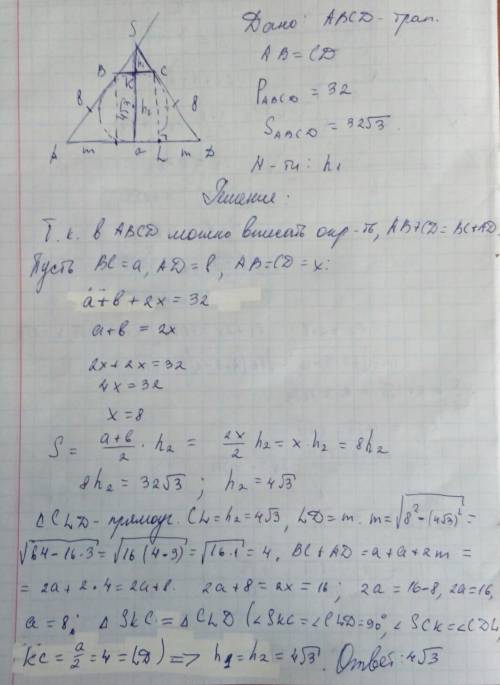 Дано: ABCD-трап.
AB = CD
P ABCD = 32
S ABCD = 32√3
Н-ти: h₁
S
B
C
K
h₁
8
8
4√3
h₂
A
m
a
L
m
D
Решение.
Т.к. в ABCD можно вписать окр-ть, AB+CD=BC+AD.
Пусть BC=a, AD=b, AB=CD=x:
a+b+2x=32
a+b=2x
2x+2x=32
4x=32
x=8
S = (a+b)/2 · h₂ = 2x/2 h₂ = x·h₂ = 8h₂
8h₂ = 32√3 ; h₂ = 4√3
△CLD-прямоуг. CL=h₂=4√3, LD=m. m=√(8²-(4√3)²)=
√(64-16·3)=√(16(4-3))=√(16·1)=4, BC+AD=a+a+2m=
=2a+2·4=2a+8. 2a+8=2x=16; 2a=16-8, 2a=16,
a=8; △SKC=△CLD (∠SKC=∠CLD=90°, ∠SCK=∠CDL,
KC=a/2=4=LD) => h₁=h₂=4√3. Ответ: 4√3